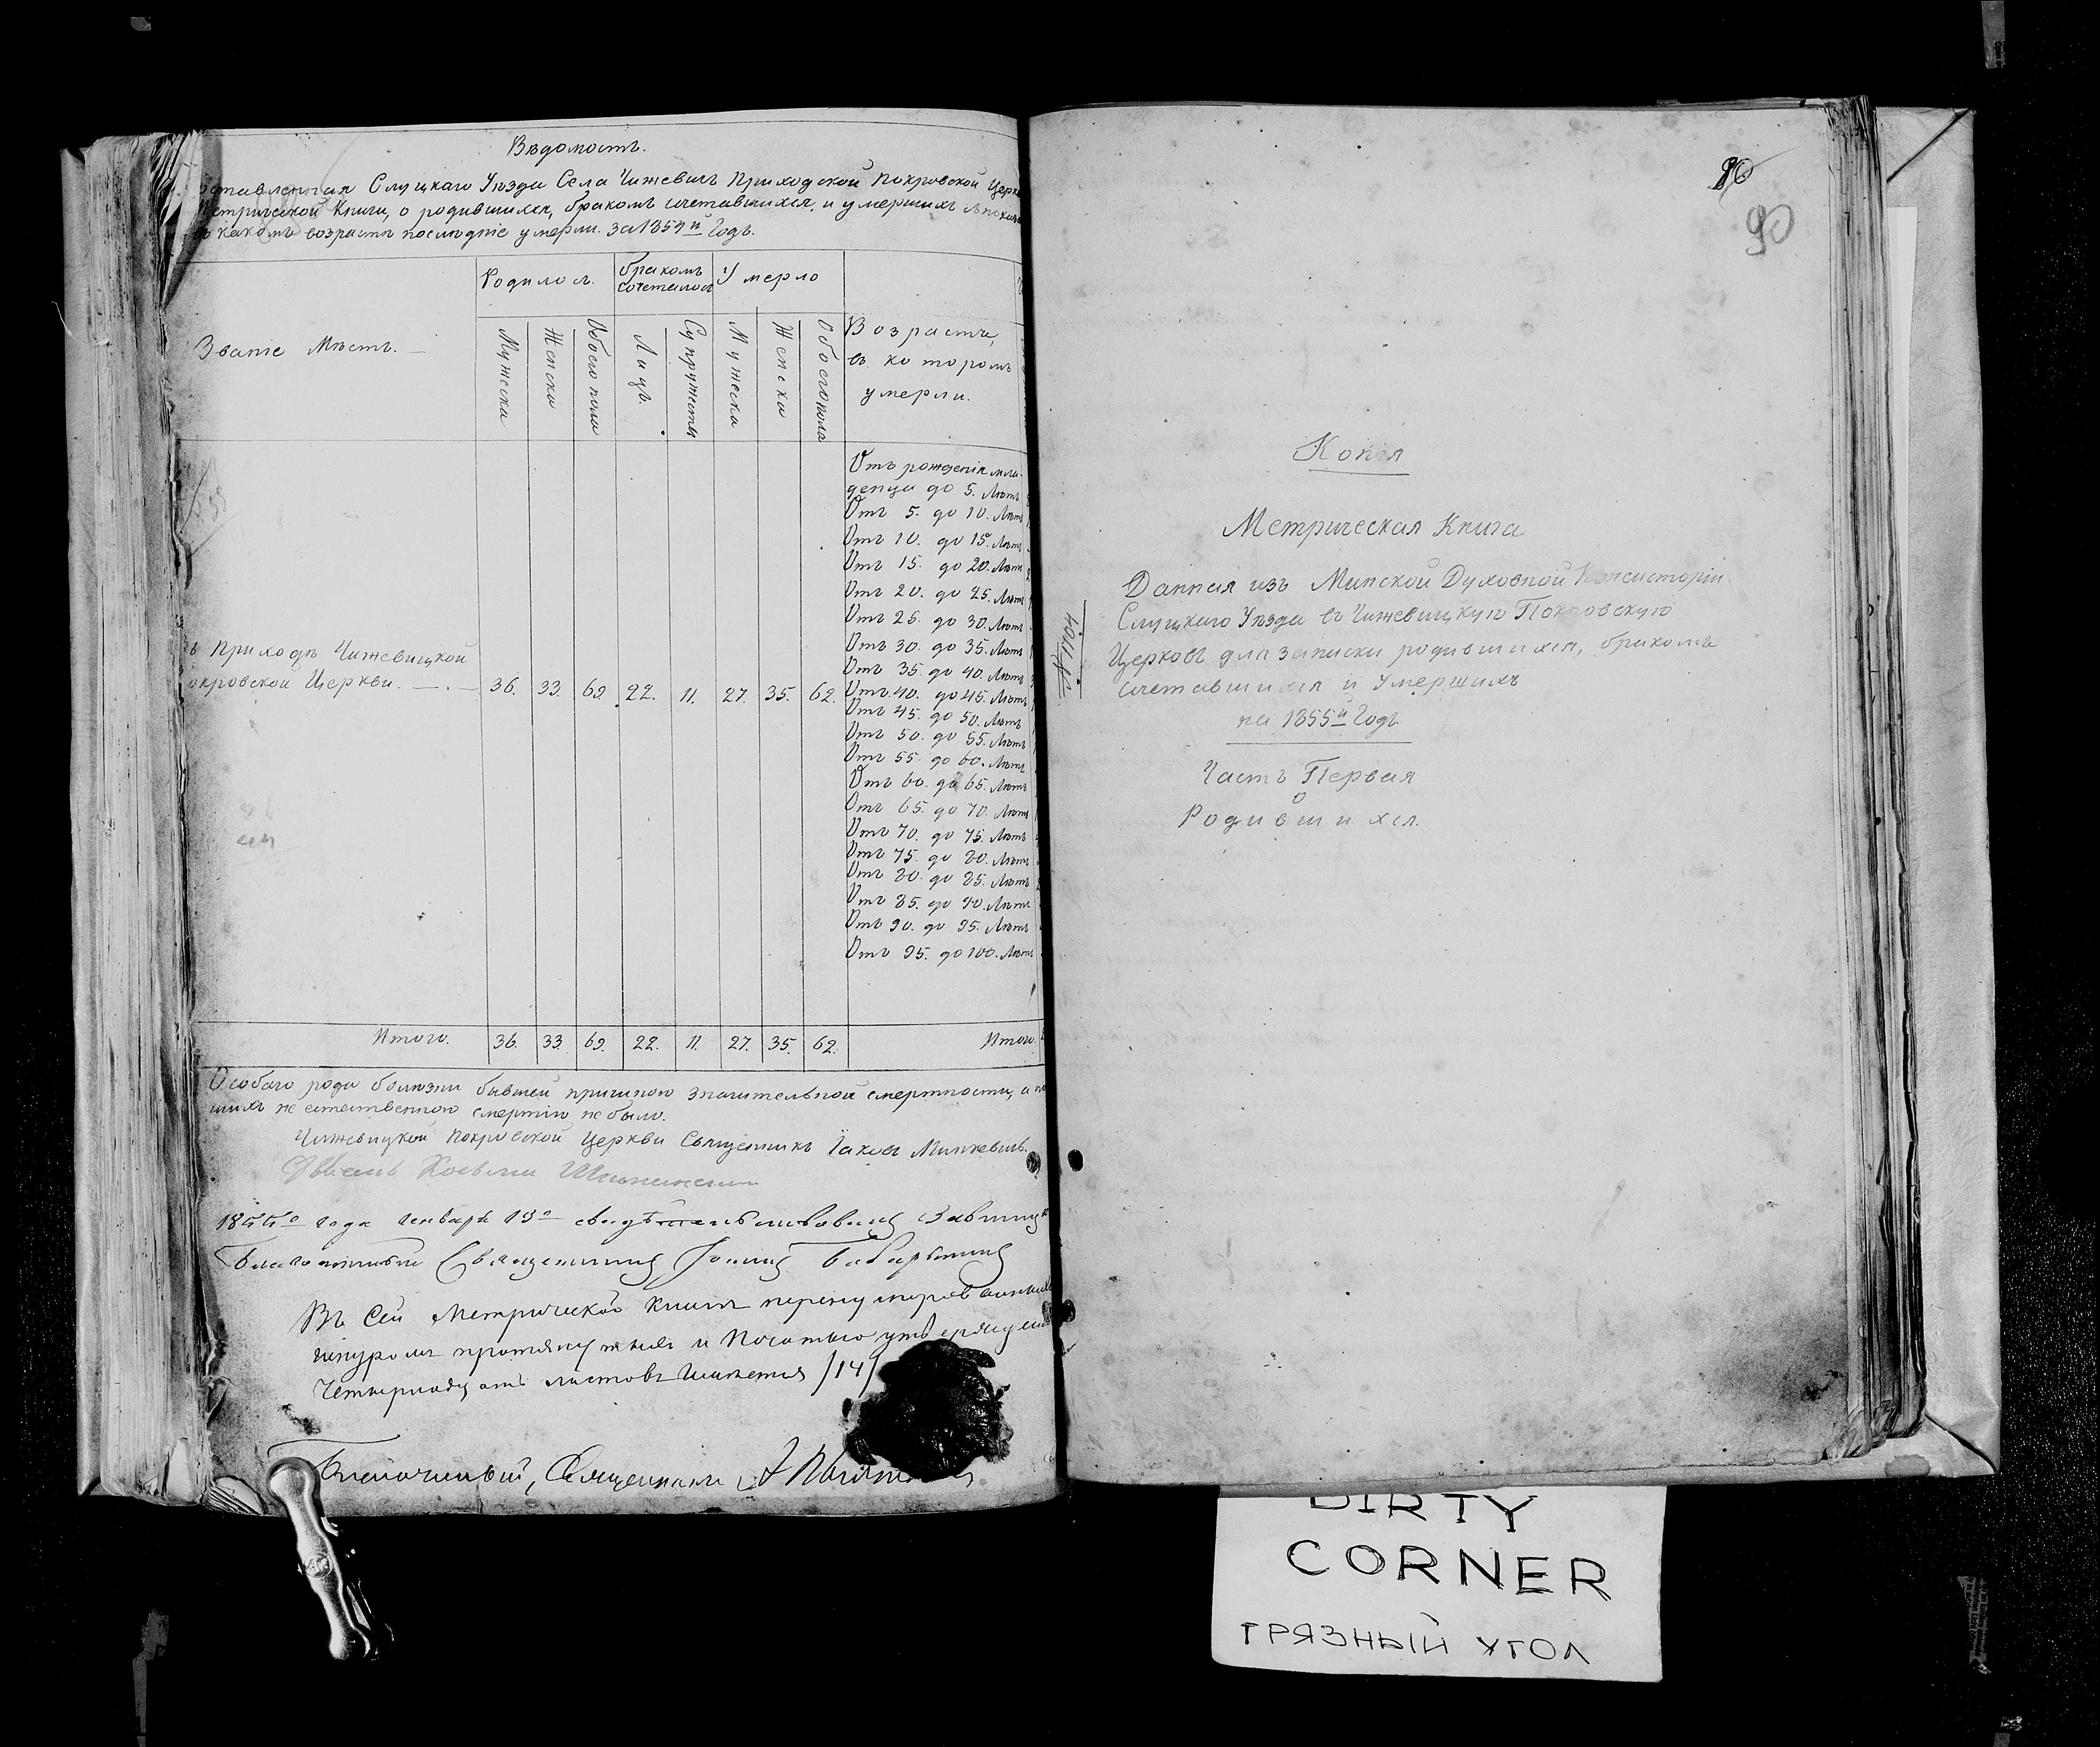 Вѣдомость.
Слуцкаго Уѣзда Села Чижевичь Приходской Покровской
Книги, о родившихся, бракомъ сочетавшихся, и умершихъ
какомъ возрастѣ послѣдніе умерли. за 1854й Годъ.
Званіе Мѣстъ.
Родилось.
бракомъ сочеталось
Умерло
Возрастъ,
въ которомъ
умерли.
Мужеска
Женска
Обоего пола
Лицъ.
Супружествъ
Мужеска
Женска
Обоего пола
Отъ рожденія мла-
денца до 5. Лѣтъ
Отъ 5. до 10. Лѣтъ
Отъ 10. до 15. Лѣтъ
Отъ 15. до 20. Лѣтъ
Отъ 20. до 25. Лѣтъ
Отъ 25. до 30. Лѣтъ
Отъ 30. до 35. Лѣтъ
Отъ 35. до 40. Лѣтъ
Приходѣ Чижевицкой
Церкви. 36. 33. 69. 22. 11. 27. 35. 62.
Отъ 40. до 45. Лѣтъ
Отъ 45. до 50. Лѣтъ
Отъ 50. до 55. Лѣтъ
Отъ 55. до 60. Лѣтъ
Отъ 60. до 65. Лѣтъ
Отъ 65. до 70. Лѣтъ
Отъ 70. до 75. Лѣтъ
Отъ 75. до 80. Лѣтъ
Отъ 80. до 85. Лѣтъ
Отъ 85. до 90. Лѣтъ
Отъ 90. до 95. Лѣтъ
Отъ 95. до 100. Лѣтъ
Итого. 36. 33. 69. 22. 11. 27. 35. 62. Итого.
Особаго рода болѣзни бывшей причиною значительной смертности, а
не естественною смертію не было.
Чижевицкой Покровской Церкви Священникъ Іаковъ Минкевичъ.
1855го года Января 13го
Благочинный Священникъ
Въ Сей Метрической книгѣ
шнуромъ и Печатью
листовъ /14/
Благочинный, Священникъ
90
90
Копія
Метрическая Книга
Данная изъ Минской Духовной Консисторіи
Слуцкаго Уѣзда въ Чижевицкую Покровскую
Церковь для записки родившихся, бракомъ
сочетавшихся и Умершихъ
на 1855й Годъ.
Часть Первая
О
Родившихся.
DIRTY
CORNER
ГРЯЗНЫЙ УГОЛ